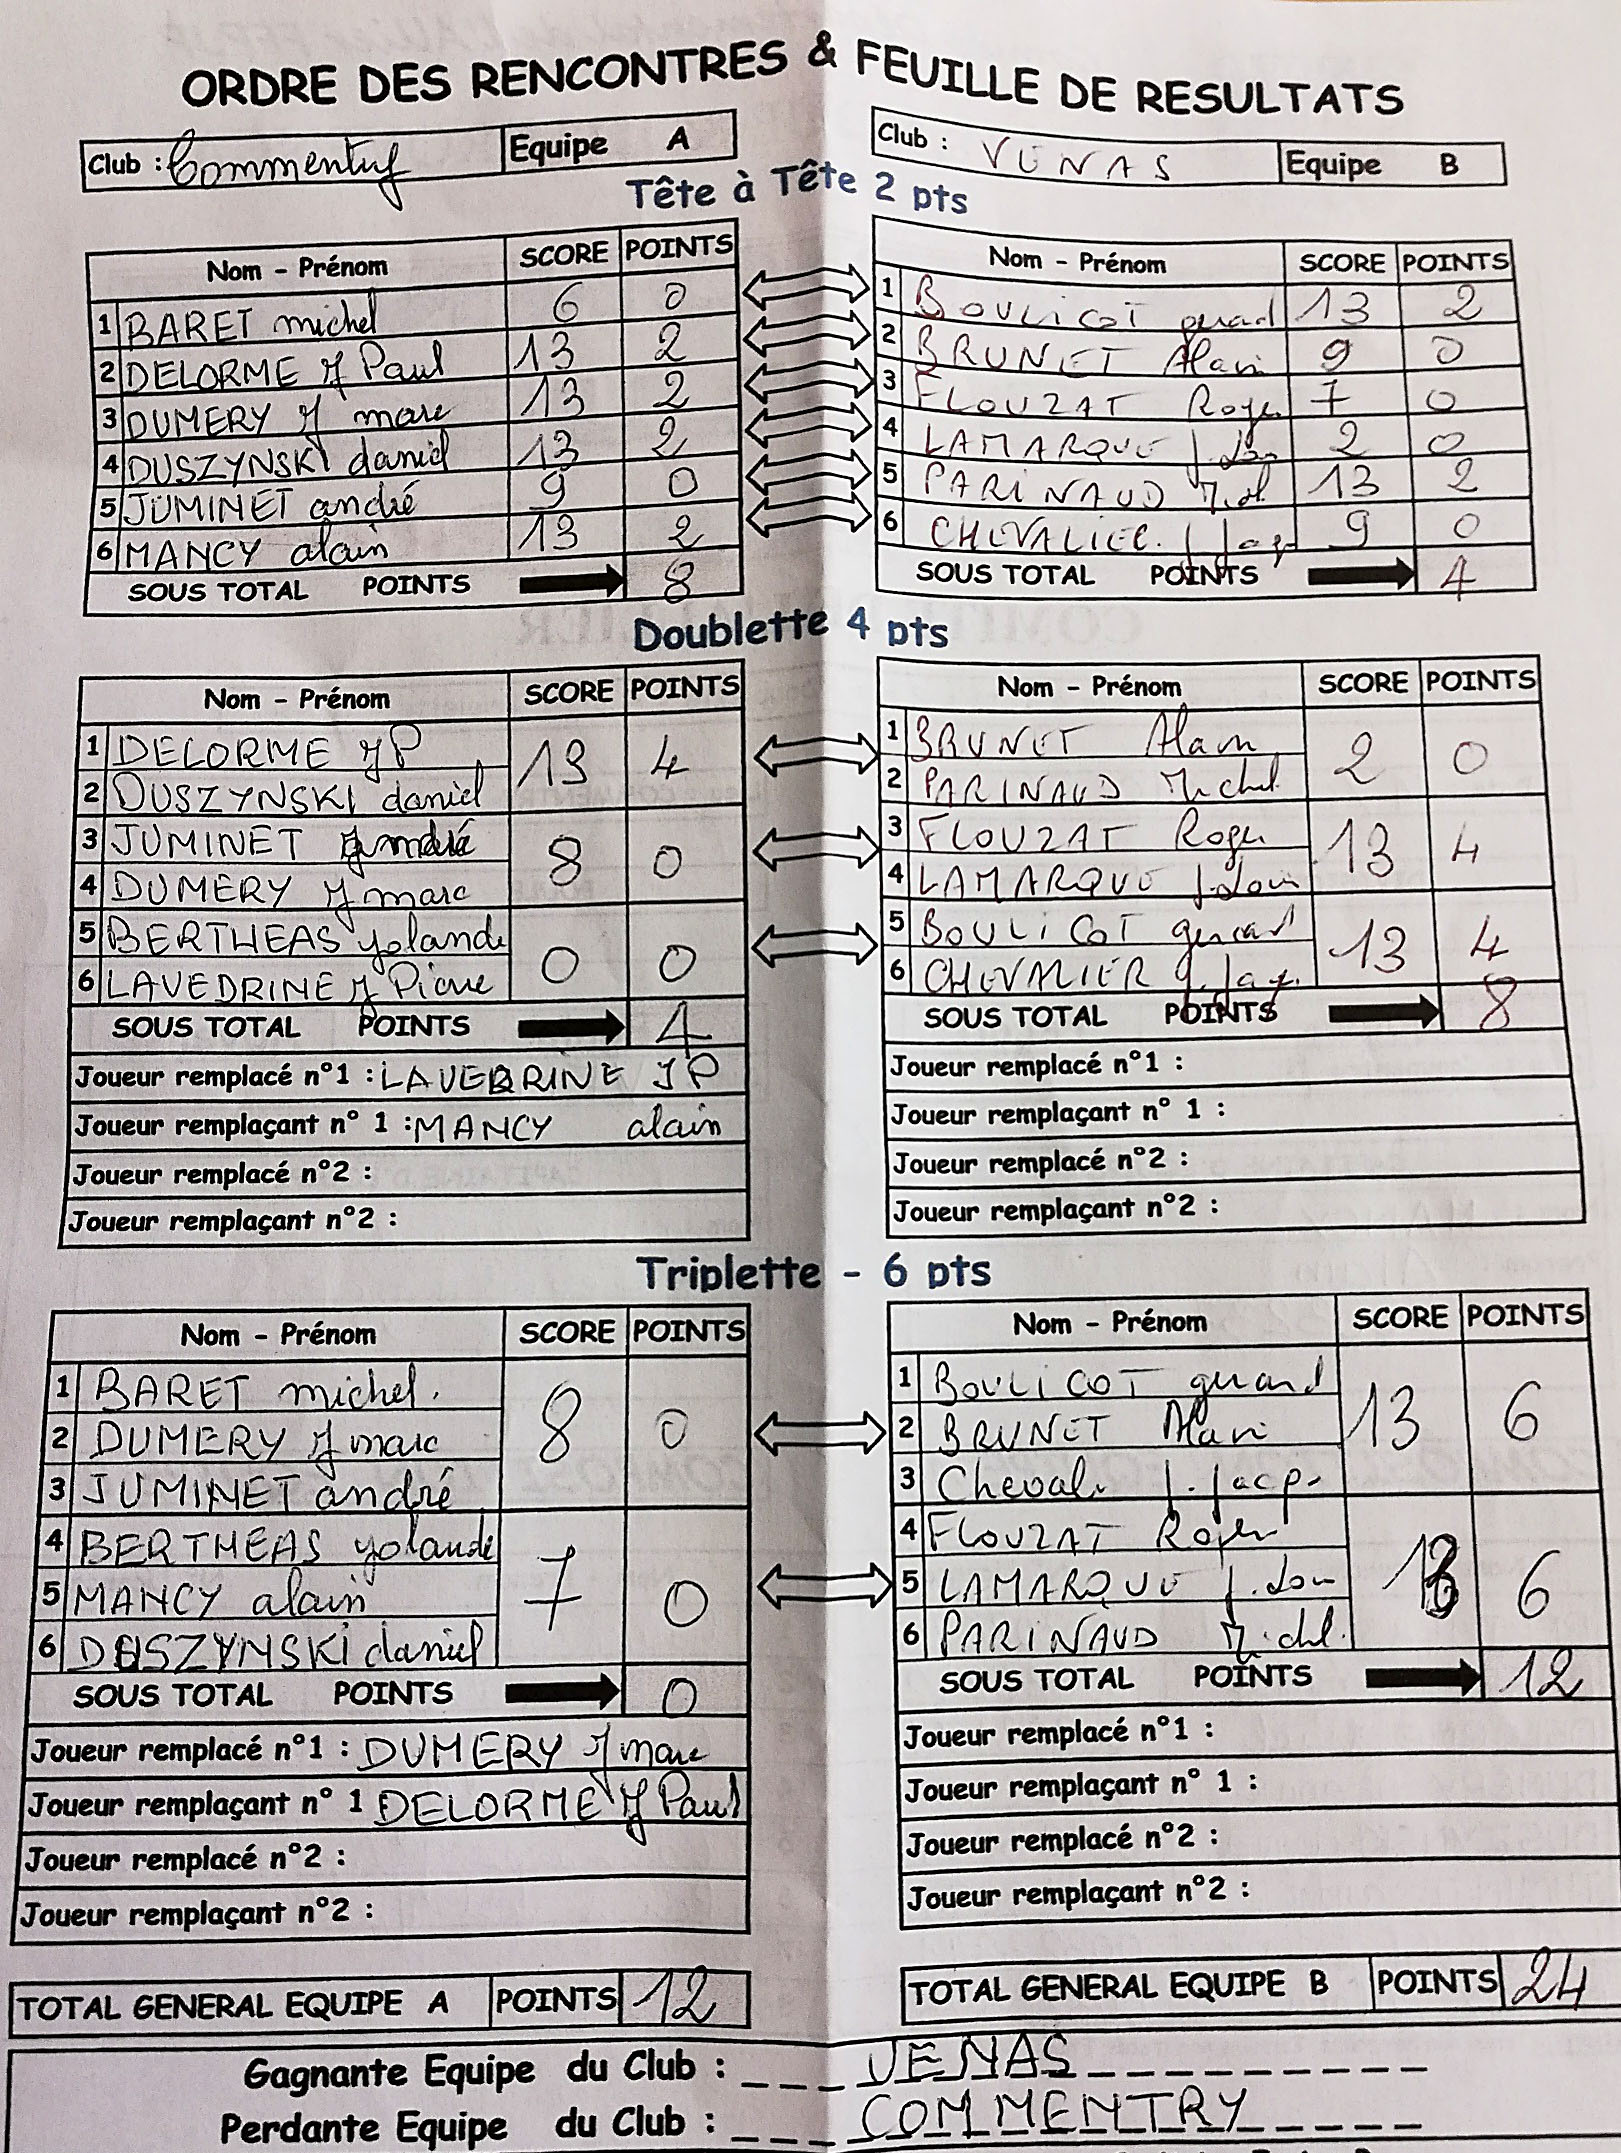 ORDRE DES RENCONTRES & FEUILLE DE RESULTATS
Club : Commentry Equipe A
Club : VENAS Equipe B
Tête à Tête 2 pts
Nom - Prénom SCORE POINTS
1 BARET michel 6 0
2 DELORME J Paul 13 2
3 DUMERY J marc 13 2
4 DUSZYNSKI daniel 13 2
5 JUMINET andré 9 0
6 MANCY alain 13 2
SOUS TOTAL POINTS 8
Nom - Prénom SCORE POINTS
1 BOULICOT gerard 13 2
2 BRUNET Alain 9 0
3 FLOUZAT Roger 7 0
4 LAMARQUE J. Lou 2 0
5 PARINAUD 13 2
6 CHEVALIER J Jacq 9 0
SOUS TOTAL POINTS 4
Doublette 4 pts
Nom - Prénom SCORE POINTS
1 DELORME JP 13 4
2 DUSZYNSKI daniel
3 JUMINET andré 8 0
4 DUMERY J marc
5 BERTHEAS yolande 0 0
6 LAVEDRINE J Pierre
SOUS TOTAL POINTS 4
Joueur remplacé n°1 : LAVEDRINE JP
Joueur remplaçant n° 1 : MANCY alain
Joueur remplacé n°2 :
Joueur remplaçant n°2 :
Nom - Prénom SCORE POINTS
1 BRUNET Alain 2 0
2 PARINAUD Michel
3 FLOUZAT Roger 13 4
4 LAMARQUE J. Lou
5 BOULICOT gerard 13 4
6 CHEVALIER J. Jaq.
SOUS TOTAL POINTS 8
Joueur remplacé n°1 :
Joueur remplaçant n° 1 :
Joueur remplacé n°2 :
Joueur remplaçant n°2 :
Triplette - 6 pts
Nom - Prénom SCORE POINTS
1 BARET michel. 8 0
2 DUMERY J marc
3 JUMINET andré
4 BERTHEAS yolande 7 0
5 MANCY alain
6 DUSZYNSKI daniel
SOUS TOTAL POINTS 0
Joueur remplacé n°1 : DUMERY J marc
Joueur remplaçant n° 1 DELORME J Paul
Joueur remplacé n°2 :
Joueur remplaçant n°2 :
Nom - Prénom SCORE POINTS
1 BOULICOT gerard 13 6
2 BRUNET Alain
3 Cheval. J. Jacq.
4 FLOUZAT Roger 13 6
5 LAMARQUE J. Lou
6 PARINAUD Michl.
SOUS TOTAL POINTS 12
Joueur remplacé n°1 :
Joueur remplaçant n° 1 :
Joueur remplacé n°2 :
Joueur remplaçant n°2 :
TOTAL GENERAL EQUIPE A POINTS 12
TOTAL GENERAL EQUIPE B POINTS 24
Gagnante Equipe du Club : VENAS
Perdante Equipe du Club : COMMENTRY